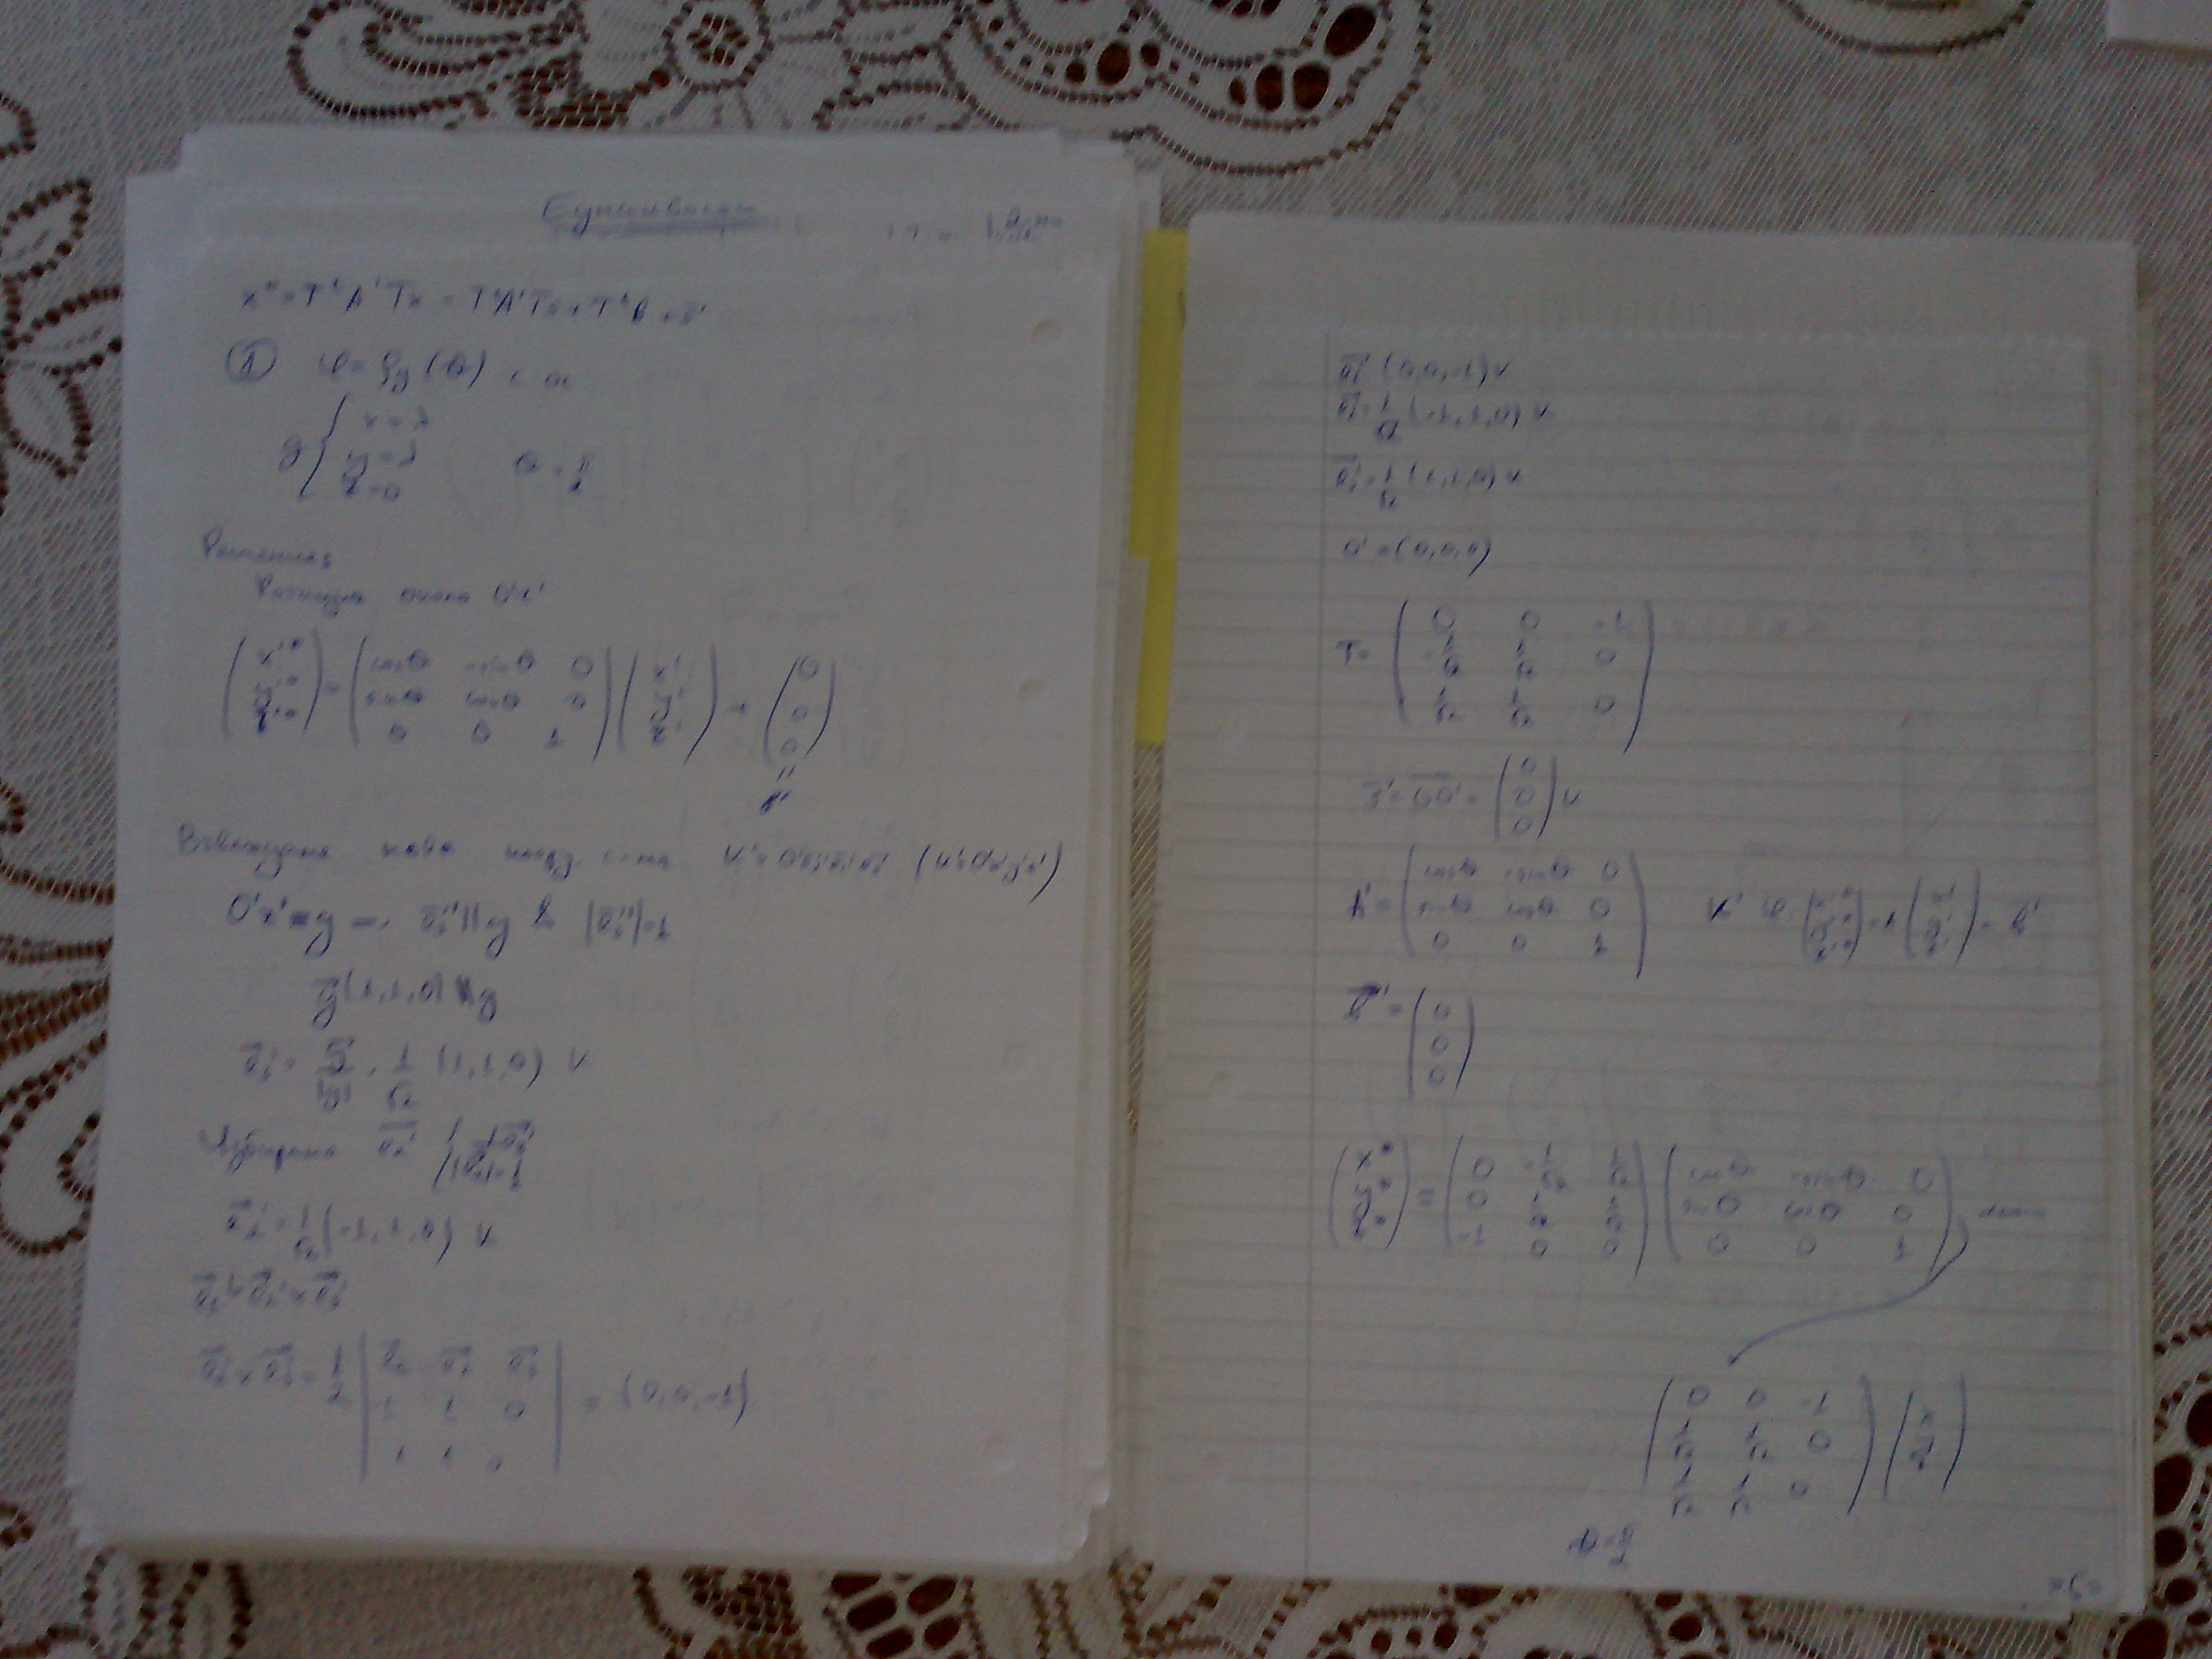 x* = TᵗA'Tx = TᵗA'Ts + Tᵗb + s'
① φ = ρg(θ)
g { x = λ
y = λ θ = π/2
z = 0
Решение:
Ротация около O'z'
(x'* y'* z'*) = (cosθ -sinθ 0; sinθ cosθ 0; 0 0 1) (x' y' z') + (0 0 0)
" b'
Въвеждаме нова коорд. с-ма K' = O'e₁'e₂'e₃' (K' = O'x'y'z')
|e₃'| = 1
g(1,1,0) || g
e₃' = g/|g| = 1/√2 (1,1,0) ✓
Избираме e₂' { ⊥e₃' |e₂'| = 1
e₂' = 1/√2 (-1,1,0) ✓
e₁' = e₂' × e₃'
e₂' × e₃' = 1/2 | e₁ e₂ e₃; -1 1 0; 1 1 0 | = (0,0,-1)
e₁' (0,0,-1) ✓
e₂' = 1/√2 (-1,1,0) ✓
e₃' = 1/√2 (1,1,0) ✓
O' = (0,0,0)
T = (0 0 -1; -1/√2 1/√2 0; 1/√2 1/√2 0)
s' = OO' = (0 0 0) ✓
A' = (cosθ -sinθ 0; sinθ cosθ 0; 0 0 1) K' φ: (x'* y'* z'*) = A (x' y' z') + b'
b' = (0 0 0)
(x* y* z*) = (0 -1/√2 1/√2; 0 1/√2 1/√2; -1 0 0) (cosθ -sinθ 0; sinθ cosθ 0; 0 0 1)
(0 0 -1; -1/√2 1/√2 0; 1/√2 1/√2 0) (x y z)
θ = π/2